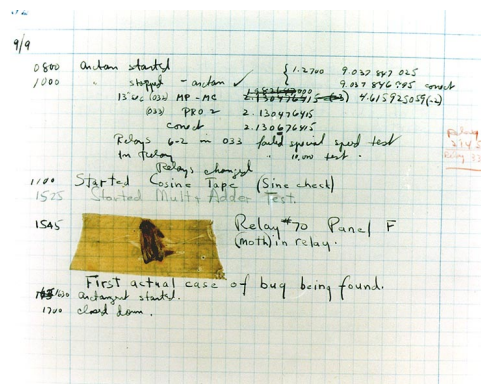 9/9
0800 Antan started { 1.2700 9.037 847 025
1000 " stopped - antan ✓ 9.037 846 995 correct
13" uc (032) MP - MC 2.130476415 (-3) 4.615925059 (-2)
(033) PRO 2 2.130476415
correct 2.130676415
Relays 6-2 in 033 failed special speed test
In Relay " 10,000 test.
Relay
Relays changed
1100 Started Cosine Tape (Sine check)
1525 Started Multy Adder Test.
1545 Relay #70 Panel F
(moth) in relay.
First actual case of bug being found.
1630 antangent started.
1700 closed down.